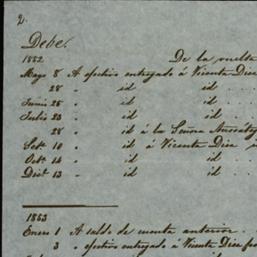 2.
Debe.
1852 De la vuelta
Mayo 8 A efectivo entregado á Vicente Diaz
" 28 " id id . . .
Junio 25 " id id . . .
Julio 23 " id id . .
28 " id á la Señora
Set.e 10 " id á Vicente Diaz
Oct.e 14 " id id . .
Dic.e 13 " id id . .
1853
Enero 1 A saldo de cuenta anterior .
3 " efectivo entregado á Vicente Diaz